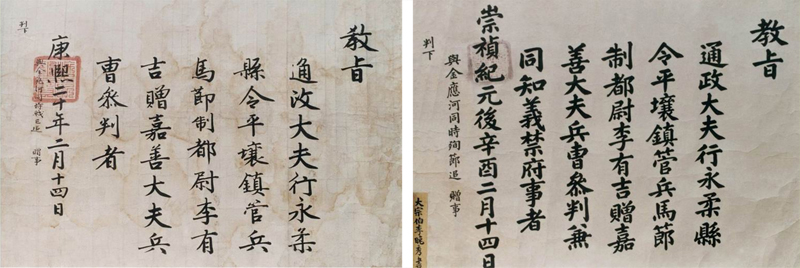 教旨
通政大夫行永柔
縣令平壤鎮管兵
馬節制都尉李有
吉贈嘉善大夫兵
曹參判者
康熙二十年二月十四日
贈事
判下
教旨
通政大夫行永柔縣
令平壤鎮管兵馬節
制都尉李有吉贈嘉
善大夫兵曹參判兼
同知義禁府事者
崇禎紀元後辛酉二月十四日
與金應河同時殉節追 贈事
判下
大宗伯李晚秀書